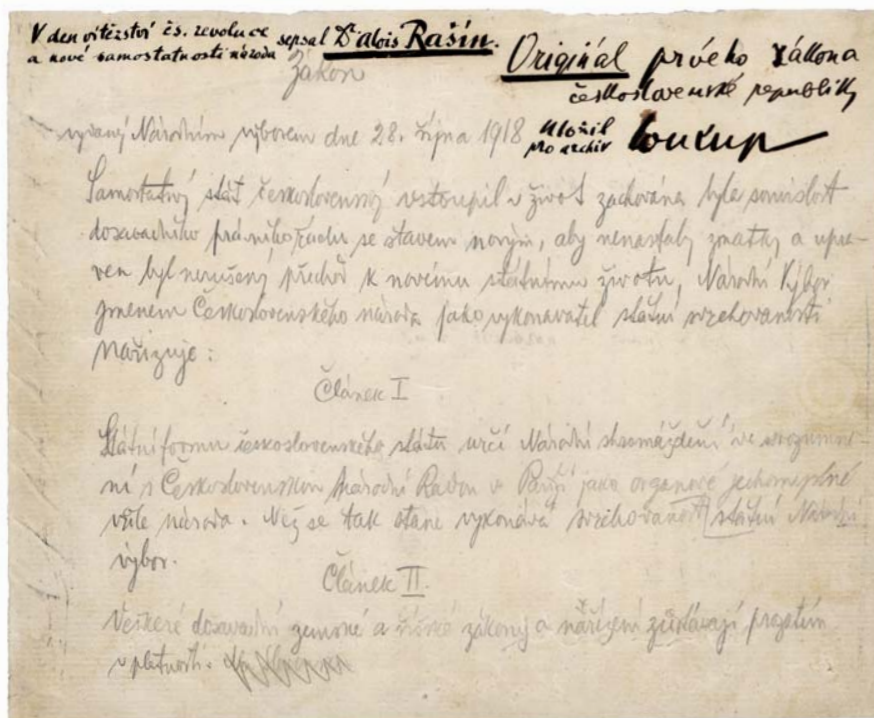 V den vítězství čs. revoluce
a nové samostatnosti národa sepsal Dr Alois Rašín.
Originál prvého zákona
československé republiky
uložil
pro archiv Soukup
Zákon
vydaný Národním výborem dne 28. října 1918
Samostatný stát československý vstoupil v život zachována byla souvislost
dosavadního právního řádu se stavem novým, aby nenastaly zmatky a upra-
ven byl nerušený přechod k novému státnímu životu, Národní Výbor
jmenem Československého národa jako vykonavatel státní svrchovanosti
nařizuje:
Článek I
Státní formu československého státu určí Národní shromáždění ve srozumně-
ní s Československou Národní Radou v Paříži jako organové jednomyslné
vůle národa. Než se tak stane vykonává svrchovanost státní Národní
výbor.
Článek II.
Veškeré dosavadní zemské a říšské zákony a nařízení zůstávají prozatím
v platnosti.